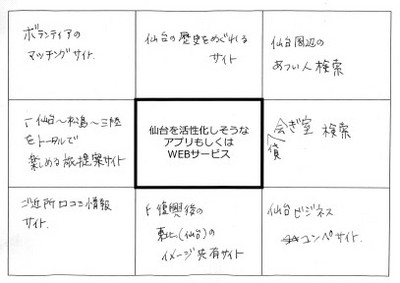 ボランティアの
マッチングサイト.
仙台の歴史をめぐれる
サイト
仙台周辺の
あつい人検索
仙台〜松島〜三陸
をトータルで
楽しめる旅提案サイト
仙台を活性化しそうな
アプリもしくは
WEBサービス
貸会ぎ室 検索
ご近所口コミ情報
サイト.
復興後の
東北(仙台)の
イメージ共有サイト
仙台ビジネス
コンペサイト.